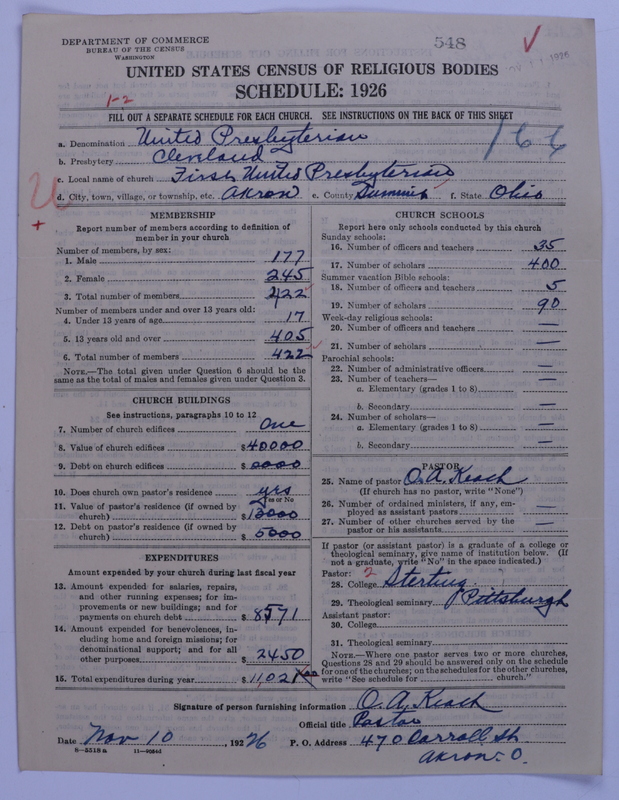 DEPARTMENT OF COMMERCE
BUREAU OF THE CENSUS
WASHINGTON
548
1926
UNITED STATES CENSUS OF RELIGIOUS BODIES
SCHEDULE: 1926
1-2
FILL OUT A SEPARATE SCHEDULE FOR EACH CHURCH. SEE INSTRUCTIONS ON THE BACK OF THIS SHEET
166
a. Denomination United Presbyterian
b. Presbytery Cleveland
c. Local name of church First United Presbyterian
d. City, town, village, or township, etc. Akron e. County Summit f. State Ohio
MEMBERSHIP
Report number of members according to definition of
member in your church
Number of members, by sex:
1. Male 177
2. Female 245
3. Total number of members 422
Number of members under and over 13 years old:
4. Under 13 years of age 17
5. 13 years old and over 405
6. Total number of members 422
NOTE.—The total given under Question 6 should be the
same as the total of males and females given under Question 3.
CHURCH BUILDINGS
See instructions, paragraphs 10 to 12
7. Number of church edifices One
8. Value of church edifices $40000
9. Debt on church edifices $0000
10. Does church own pastor's residence yes
Yes or No
11. Value of pastor's residence (if owned by
church) $12000
12. Debt on pastor's residence (if owned by
church) $5000
EXPENDITURES
Amount expended by your church during last fiscal year
13. Amount expended for salaries, repairs,
and other running expenses; for im-
provements or new buildings; and for
payments on church debt $8571
14. Amount expended for benevolences, in-
cluding home and foreign missions; for
denominational support; and for all
other purposes $2450
15. Total expenditures during year $11,021
CHURCH SCHOOLS
Report here only schools conducted by this church
Sunday schools:
16. Number of officers and teachers 35
17. Number of scholars 400
Summer vacation Bible schools:
18. Number of officers and teachers 5
19. Number of scholars 90
Week-day religious schools:
20. Number of officers and teachers —
21. Number of scholars —
Parochial schools:
22. Number of administrative officers —
23. Number of teachers—
a. Elementary (grades 1 to 8) —
b. Secondary —
24. Number of scholars—
a. Elementary (grades 1 to 8) —
b. Secondary —
PASTOR
25. Name of pastor O. A. Keach
(If church has no pastor, write "None")
26. Number of ordained ministers, if any, em-
ployed as assistant pastors —
27. Number of other churches served by the
pastor or his assistants —
If pastor (or assistant pastor) is a graduate of a college or
theological seminary, give name of institution below. (If
not a graduate, write "No" in the space indicated.)
Pastor: 2
28. College Sterling
29. Theological seminary Pittsburgh
Assistant pastor:
30. College
31. Theological seminary
NOTE.—Where one pastor serves two or more churches,
Questions 28 and 29 should be answered only on the schedule
for one of the churches; on the schedules for the other churches,
write "See schedule for church."
Signature of person furnishing information O. A. Keach
Official title Pastor
Date Nov 10, 1926 P. O. Address 470 Carroll St
8-5518a 11-9054d
Akron, O.